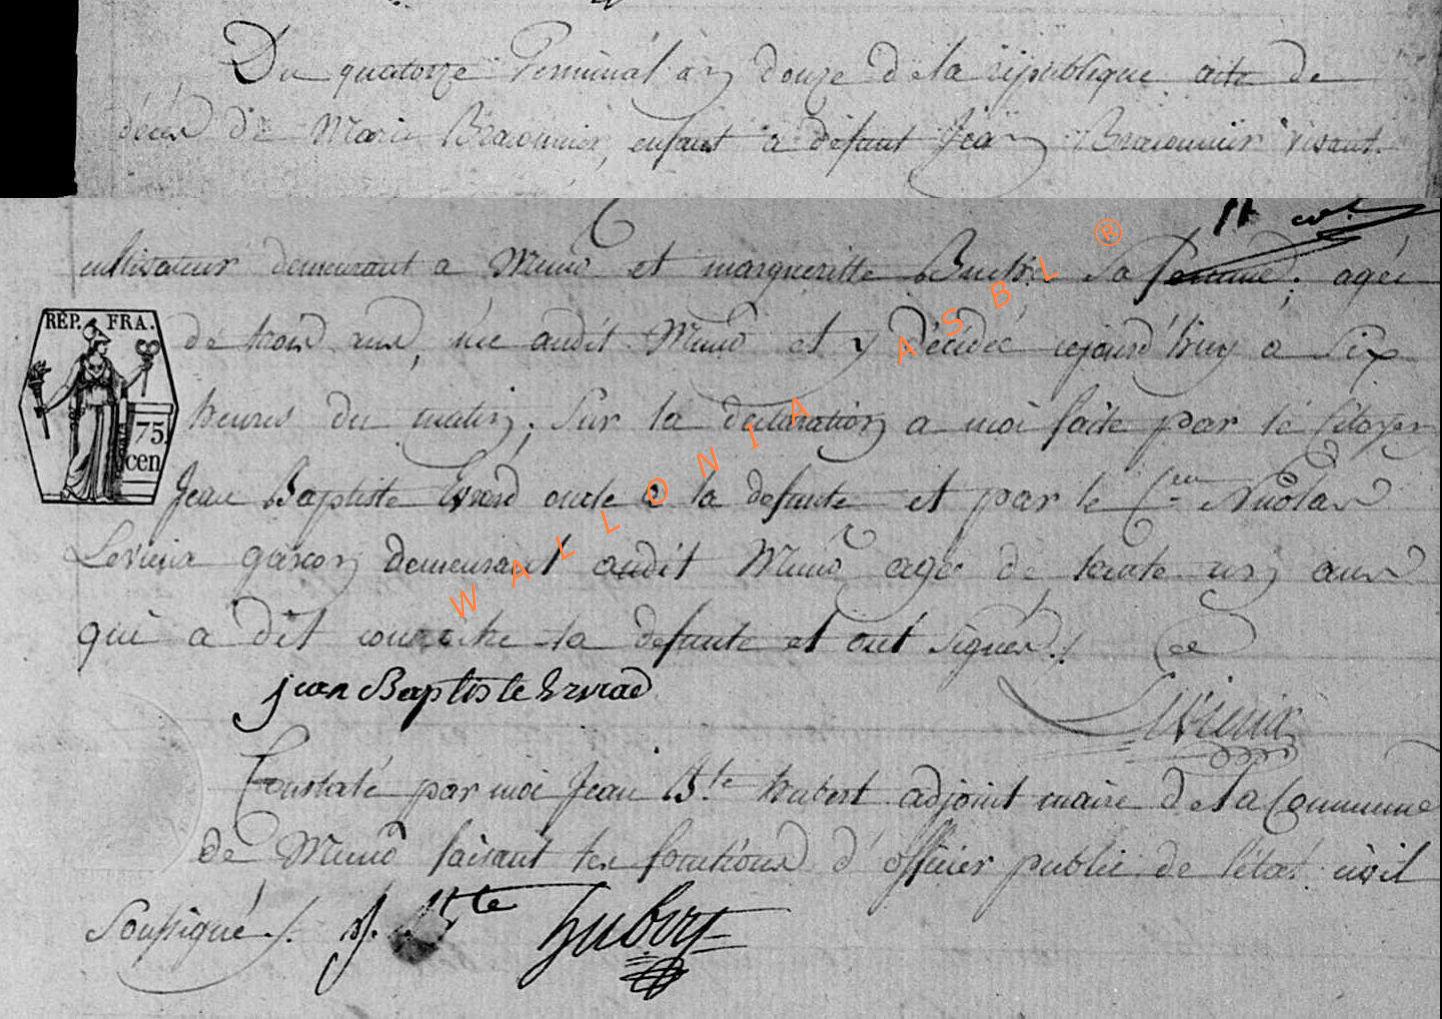 Du quatorze Germinal an douze de la république acte de
décès de Marie Braconnier, enfant a défunt Jean Braconnier vivant
cultivateur demeurant a Muno et margueritte sa femme ; agée
RÉP. FRA.
75 cen
de trois ans, née audit Muno et y décédée cejourd'huy a six
heures du matin ; sur la declaration a moi faite par le Citoyen
Jean Baptiste Evrard oncle a la defunte et par le Cen Nicolas
Levieux garçon demeurant audit Muno agé de trente un ans
qui a dit connoitre la defunte et ont signés ./.
jean Baptiste Evrard
Levieux
Constaté par moi Jean Bte hubert adjoint maire de la Commune
de Muno faisant les fonctions d'officier public de l'état civil
soussigné ./. J. Bte hubert
WALLONIA ASBL ®